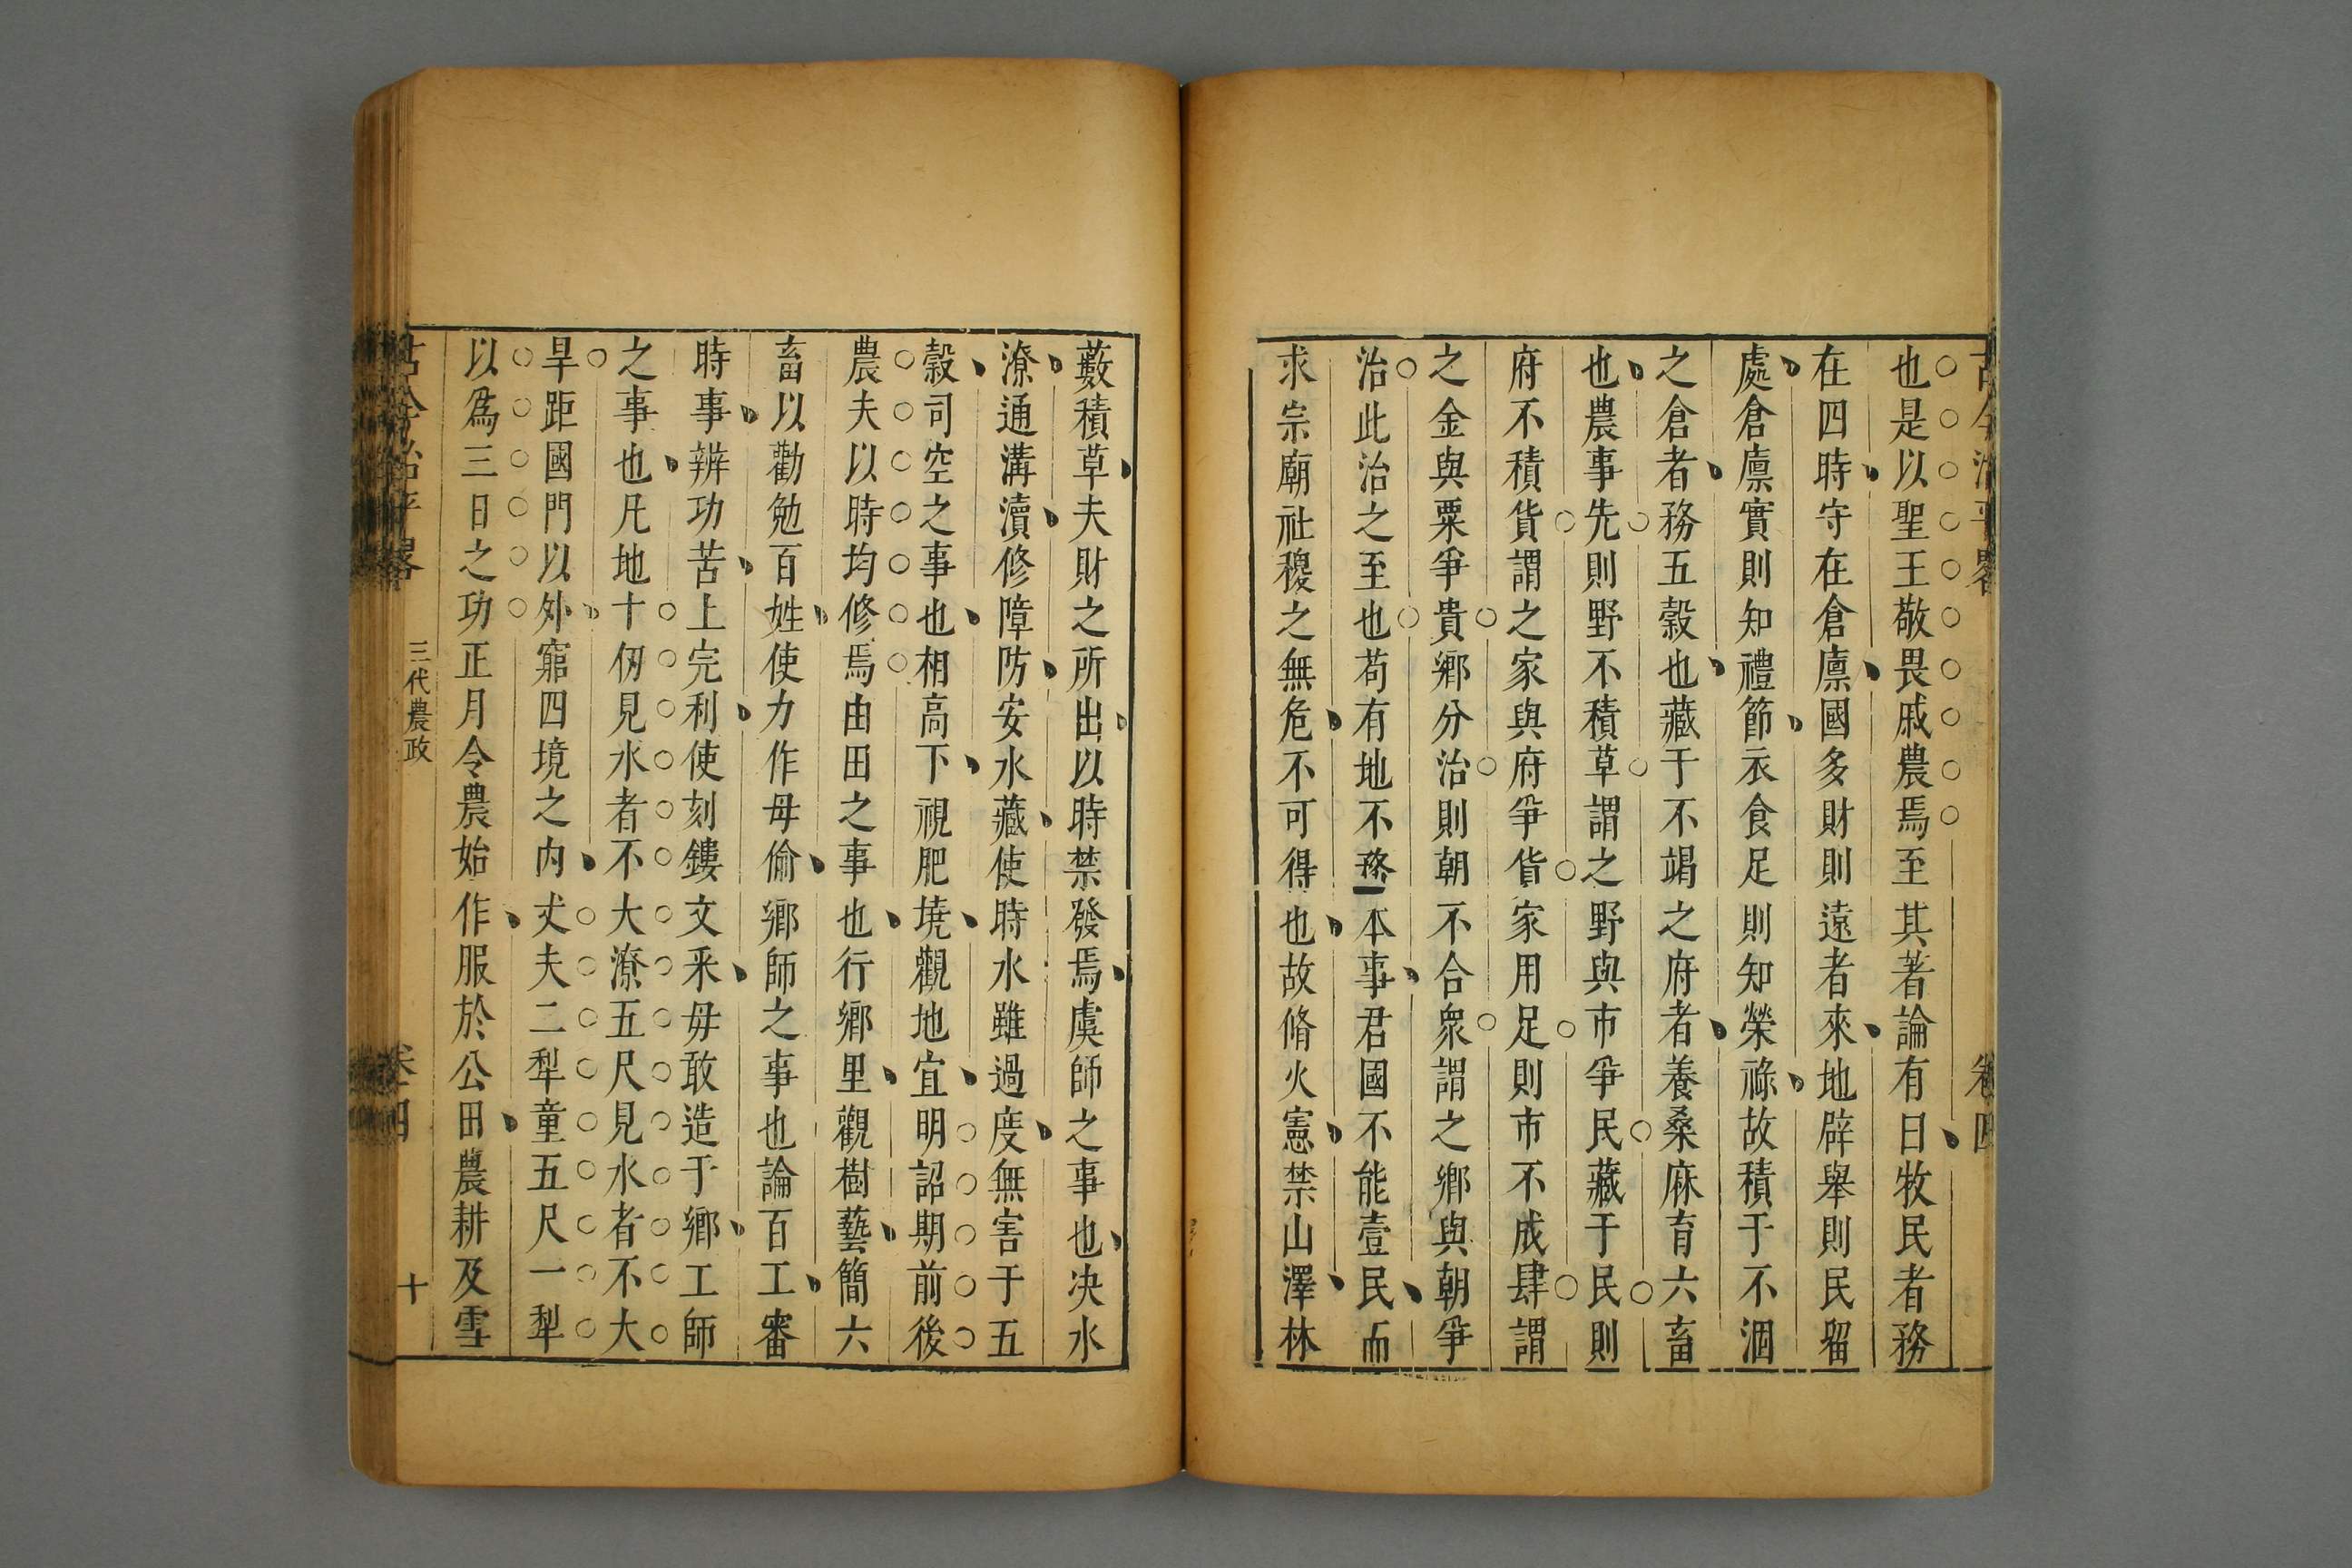 古今治平畧
卷四
也是以聖王敬畏戚農焉至其著論有曰牧民者務
在四時守在倉廪國多財則遠者來地辟舉則民畱
處倉廪實則知禮節衣食足則知榮祿故積于不涸
之倉者務五穀也藏于不竭之府者養桑麻育六畜
也農事先則野不積草謂之野與市爭民藏于民則
府不積貨謂之家與府爭貨家用足則市不成肆謂
之金與粟爭貴鄉分治則朝不合衆謂之鄉與朝爭
治此治之至也苟有地不務本事君國不能壹民而
求宗廟社稷之無危不可得也故脩火憲禁山澤林
藪積草夫財之所出以時禁發焉虞師之事也決水
潦通溝瀆修障防安水藏使時水雖過度無害于五
糓司空之事也相高下視肥墝觀地宜明詔期前後
農夫以時均修焉由田之事也行鄉里觀樹藝簡六
畜以勸勉百姓使力作毋偷鄉師之事也論百工審
時事辨功苦上完利使刻鏤文釆毋敢造于鄉工師
之事也凡地十仞見水者不大潦五尺見水者不大
旱距國門以外窮四境之内丈夫二犁童五尺一犁
以爲三日之功正月令農始作服於公田農耕及雪
古今治平畧
三代農政
卷四
十